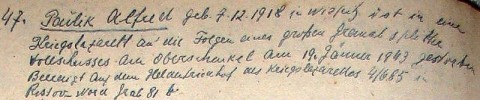 47. Paulik Alfred geb. 7.12.1918 in Wistritz ist in einem
Kriegslazarett an die Folgen eines großen Granatsplitter
vollschusses am Oberschenkel am 19. Jänner 1943 gestorben
Beerdigt auf dem Heldenfriedhof des Kriegslazarettes 4/685 in
Rostow Nord Grab 81 b.